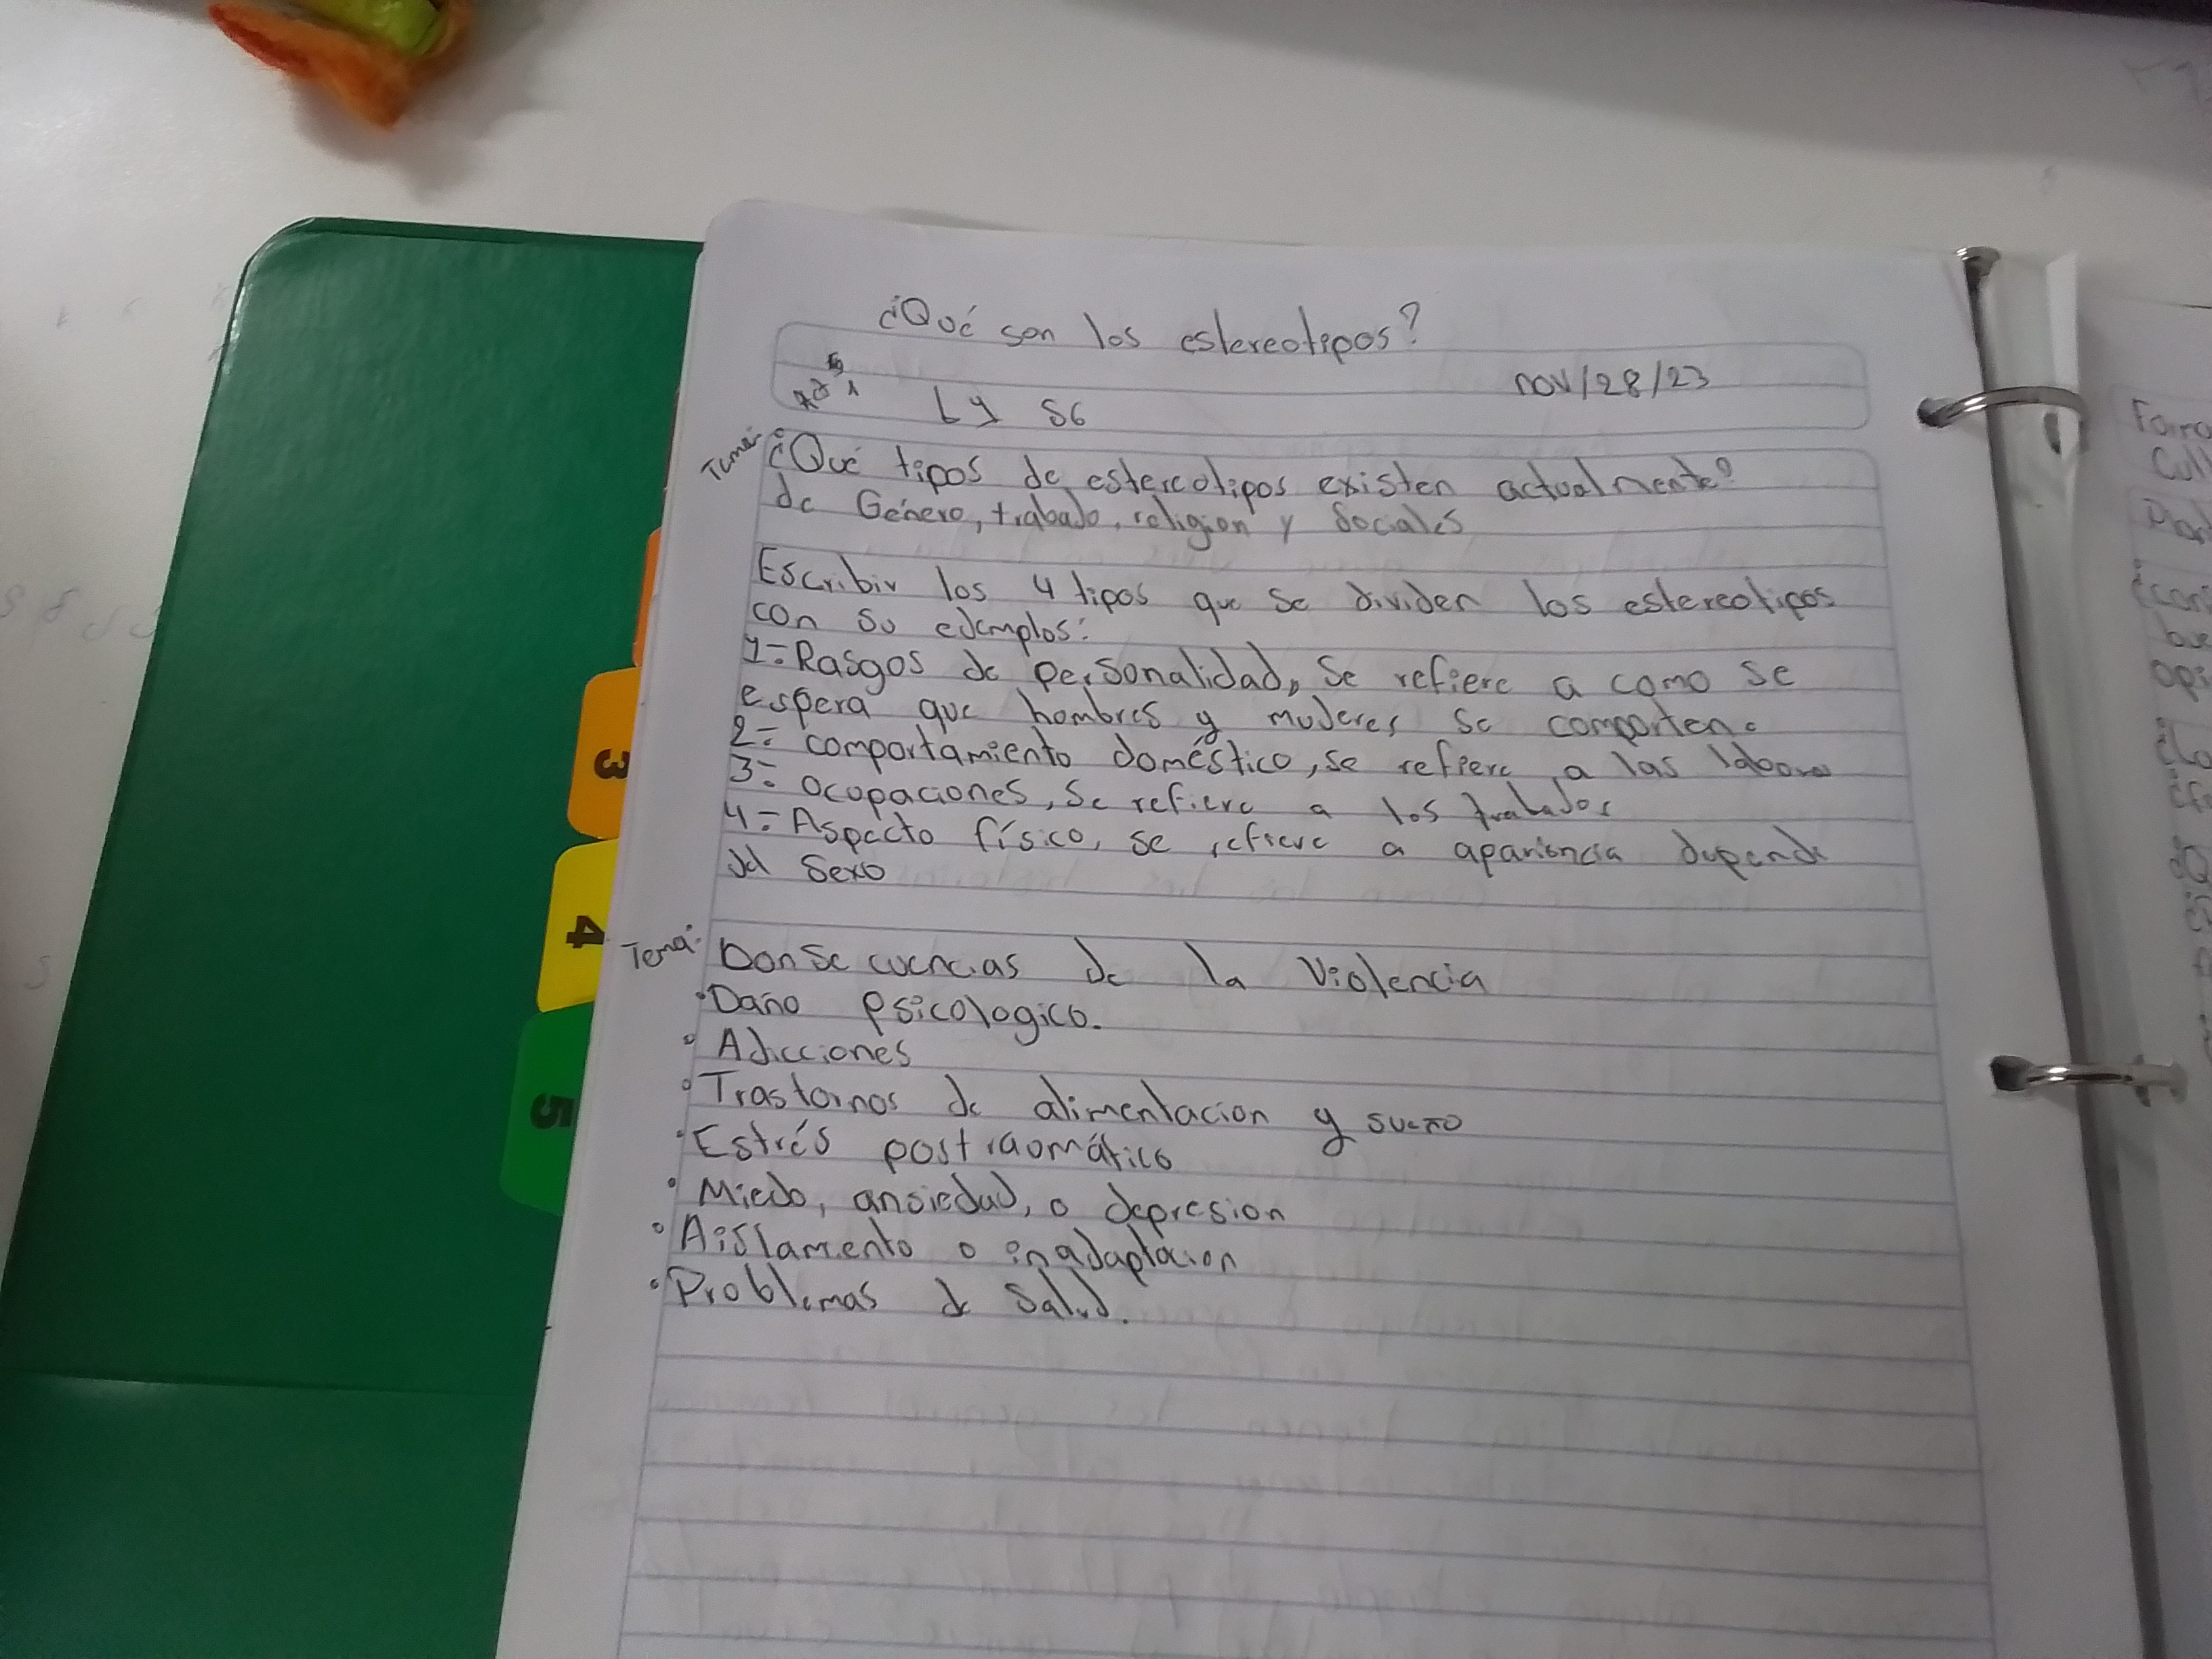 ¿Qué son los estereotipos?
nov/28/23
Ly S6
Tema: ¿Qué tipos de estereotipos existen actualmente?
de Género, trabajo, religion y Sociales
Escribir los 4 tipos que se dividen los estereotipos
con su ejemplos:
1= Rasgos de personalidad, se refiere a como se
espera que hombres y mujeres se comporten.
2= comportamiento doméstico, se refiere a las labores
3= ocupaciones, se refiere a los
4= Aspecto físico, se refiere a apariencia depende
del sexo
Tema: Consecuencias de la Violencia
• Daño psicologico.
• Adicciones
• Trastornos de alimentacion y sueño
• Estrés postraomático
• Miedo, ansiedad, o depresion
• Aislamento o inadaptacion
• Problemas de Salud.
3
4
5